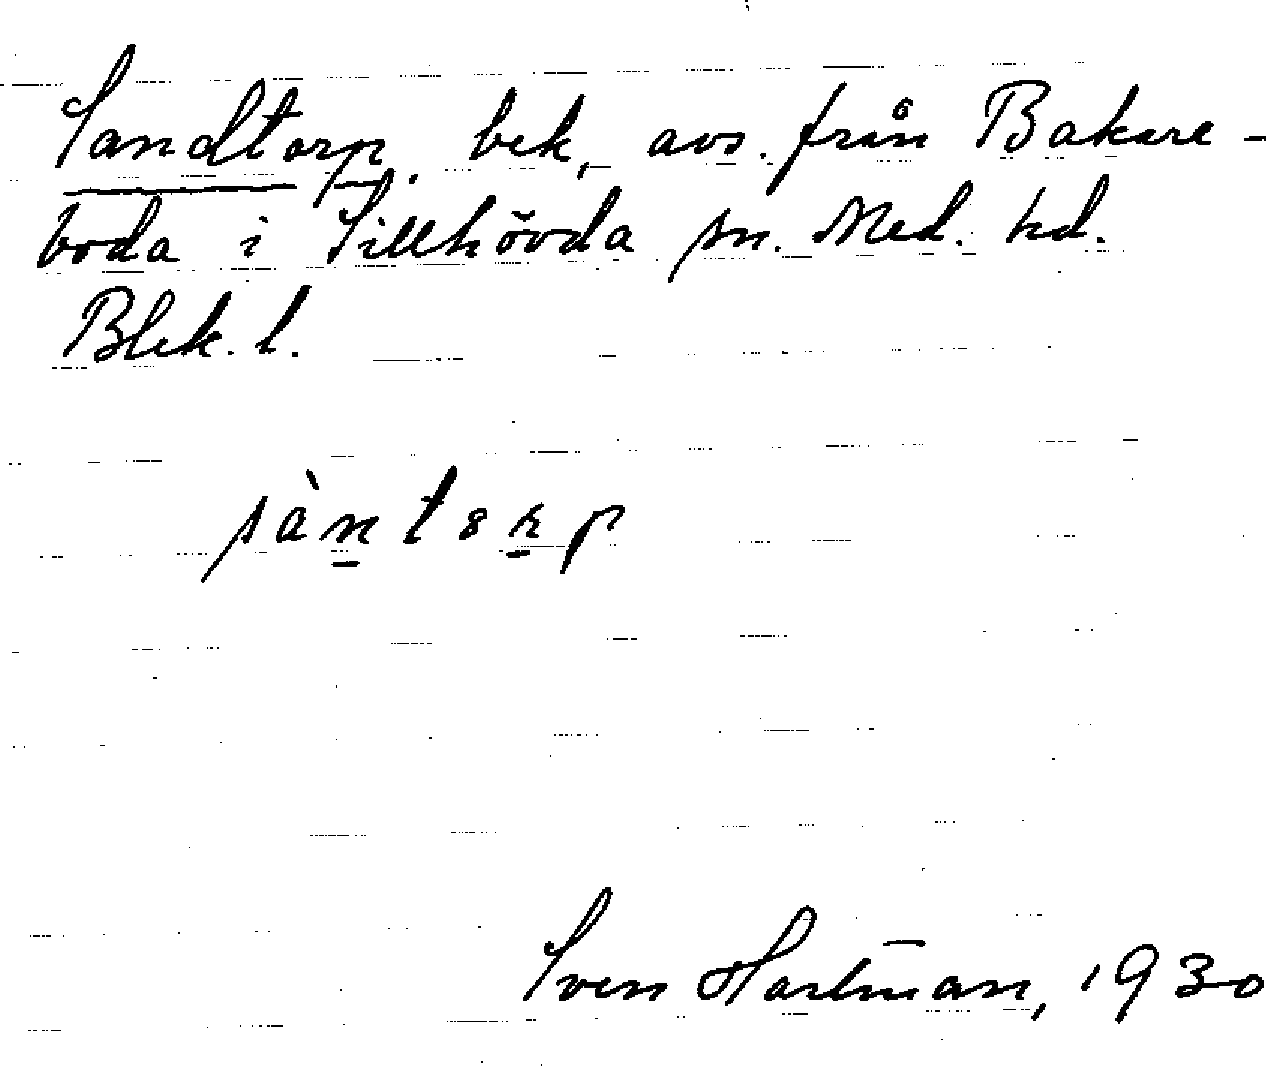 Sandtorp. bek, avs. från Bakare-
boda i Sillhövda sn. Med. hd.
Blek. l.
sàntorp
Sven Hartman, 1930